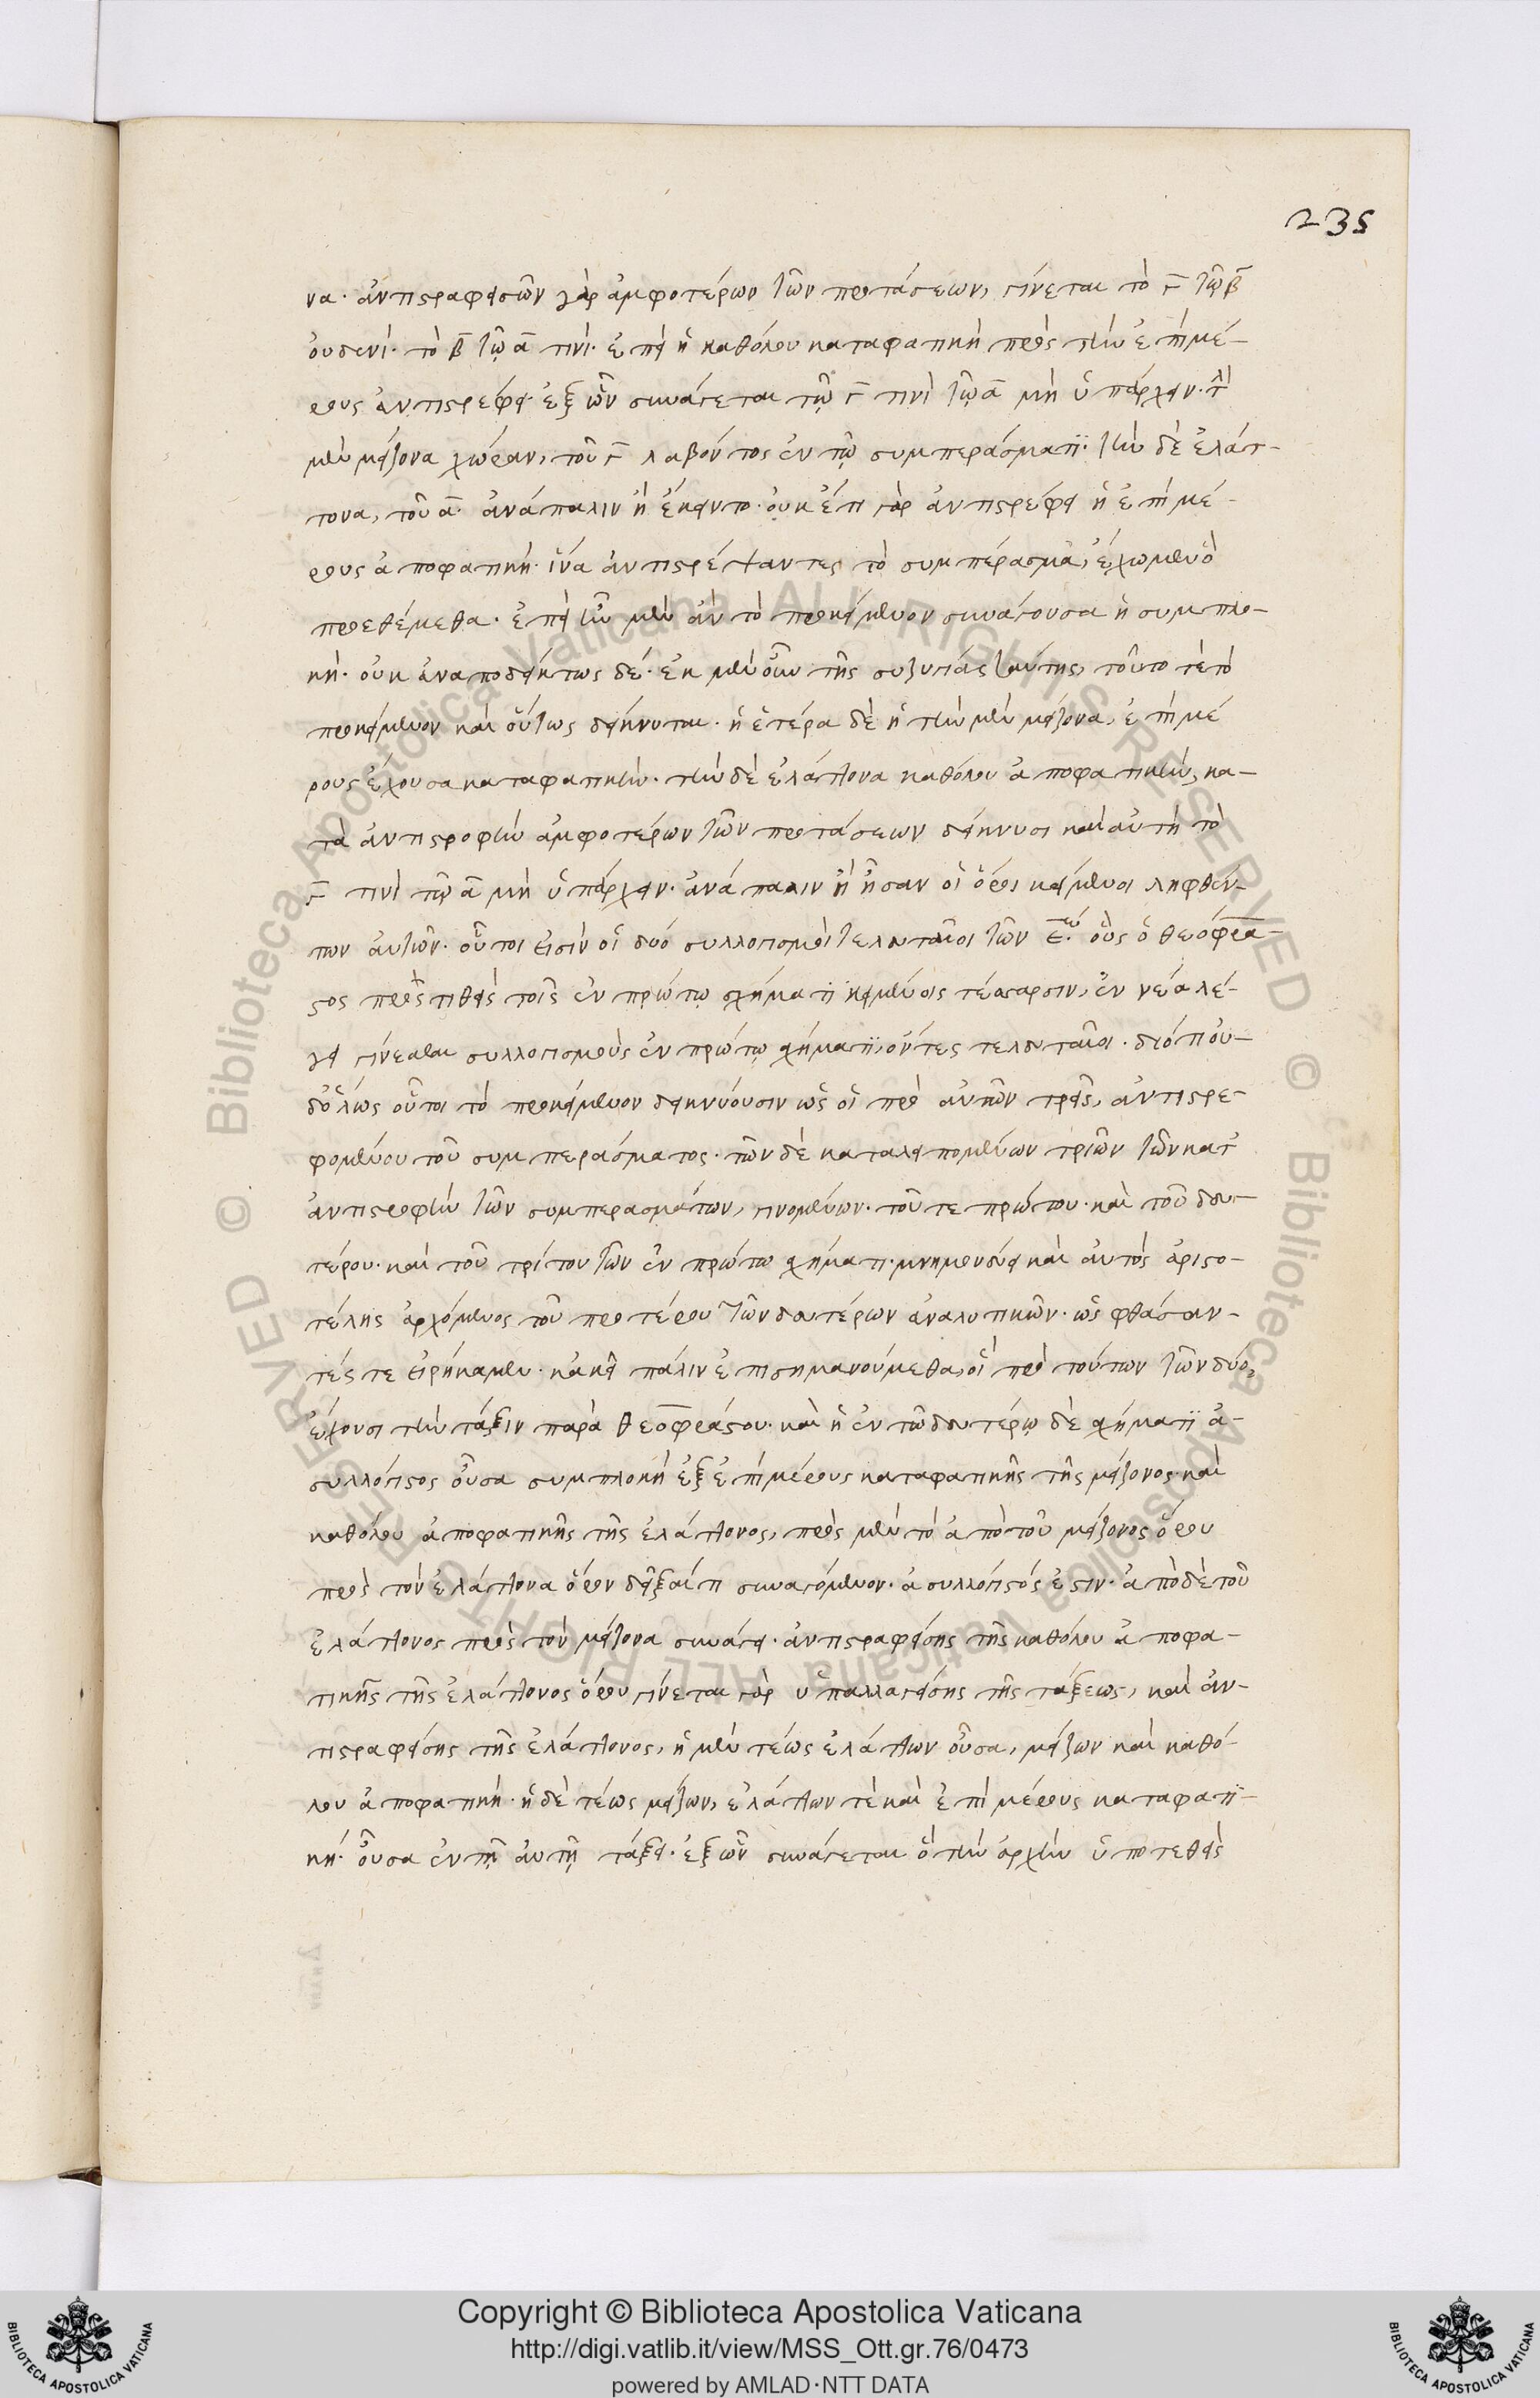 235
να· ἀντιστραφεισῶν γὰρ ἀμφοτέρων τῶν προτάσεων, γίνεται τὸ γ̄ τῷ β̄
οὐδενί· τὸ β̄ τῷ ᾱ τινί· ἐπεὶ ἡ καθόλου καταφατικὴ πρὸς τὴν ἐπὶ μέ-
ρους ἀντιστρέφει· ἐξ ὧν συνάγεται τῷ γ̄ τινὶ τῷ ᾱ μὴ ὑπάρχειν· τὴν
μὲν μείζονα χώραν, τοῦ γ̄ λαβόντος ἐν τῷ συμπεράσματι· τὴν δὲ ἐλάτ-
τονα, τοῦ ᾱ· ἀνάπαλιν ἢ ἔκειντο· οὐκ ἔτι γὰρ ἀντιστρέφει ἡ ἐπὶ μέ-
ρους ἀποφατική· ἵνα ἀντιστρέψαντες τὸ συμπέρασμα, ἔχωμεν ὃ
προεθέμεθα· ἐπεὶ ἦν μὲν ἂν τὸ προκείμενον συνάγουσα ἡ συμπλο-
κή· οὐκ ἀναποδείκτως δέ· ἐκ μὲν οὖν τῆς συζυγίας ταύτης, τοῦτο τὲ τὸ
προκείμενον καὶ οὕτως δείκνυται· ἡ ἑτέρα δὲ ἡ τὴν μὲν μείζονα, ἐπὶ μέ
ρους ἔχουσα καταφατικήν· τὴν δὲ ἐλάττονα καθόλου ἀποφατικήν, κα-
τὰ ἀντιστροφὴν ἀμφοτέρων τῶν προτάσεων δείκνυσι καὶ αὐτὴ τὸ
γ̄ τινὶ τῷ ᾱ μὴ ὑπάρχειν· ἀνάπαλιν ἢ ἦσαν οἱ ὅροι κείμενοι ληφθέν-
των αὐτῶν· οὗτοι εἰσὶν οἱ δύο συλλογισμοὶ τελευταῖοι τῶν ε̄· οὓς ὁ θεόφρα-
στος προστιθεὶς τοῖς ἐν πρώτῳ σχήματι κειμένοις τέσσαρσιν, ἐννέα λέ-
γει γίνεσθαι συλλογισμοὺς ἐν πρώτῳ σχήματι, ὄντες τελευταῖοι· διότι οὐ-
δ' ὅλως οὗτοι τὸ προκείμενον δεικνύουσιν ὡς οἱ πρὸ αὐτῶν τρεῖς, ἀντιστρε-
φομένου τοῦ συμπεράσματος· τῶν δὲ καταλειπομένων τριῶν τῶν κατ'
ἀντιστροφὴν τῶν συμπερασμάτων, γινομένων· τοῦ τε πρώτου· καὶ τοῦ δευ-
τέρου· καὶ τοῦ τρίτου τῶν ἐν πρώτῳ σχήματι· μνημονεύει καὶ αὐτὸς ἀριστο-
τέλης ἀρχόμενος τοῦ προτέρου τῶν δευτέρων ἀναλυτικῶν· ὡς φθάσαν-
τές τε εἰρήκαμεν· κἀκεῖ πάλιν ἐπισημανούμεθα, οἱ πρὸ τούτων τῶν δύο,
ἔχουσι τὴν τάξιν παρὰ θεοφράστου· καὶ ἡ ἐν τῷ δευτέρῳ δὲ σχήματι ἀ-
συλλόγιστος οὖσα συμπλοκὴ ἐξ ἐπὶ μέρους καταφατικῆς τῆς μείζονος· καὶ
καθόλου ἀποφατικῆς τῆς ἐλάττονος, πρὸς μὲν τὸ ἀπὸ τοῦ μείζονος ὅρου
πρὸς τὸν ἐλάττονα ὅρον δεῖξαί τι συναγόμενον· ἀσυλλόγιστός ἐστιν· ἀπὸ δὲ τοῦ
ἐλάττονος πρὸς τὸν μείζονα συνάγει· ἀντιστραφείσης τῆς καθόλου ἀποφα-
τικῆς τῆς ἐλάττονος ὅρου γίνεται γὰρ ὑπαλλαγείσης τῆς τάξεως, καὶ ἀν-
τιστραφείσης τῆς ἐλάττονος, ἡ μὲν τέως ἐλάττων οὖσα, μείζων καὶ καθό-
λου ἀποφατική· ἡ δὲ τέως μείζων, ἐλάττων τὲ καὶ ἐπὶ μέρους καταφατι-
κή· οὖσα ἐν τῇ αὐτῇ τάξει· ἐξ ὧν συνάγεται ὁ τὴν ἀρχὴν ὑποτεθεὶς
Copyright © Biblioteca Apostolica Vaticana
http://digi.vatlib.it/view/MSS_Ott.gr.76/0473
powered by AMLAD·NTT DATA